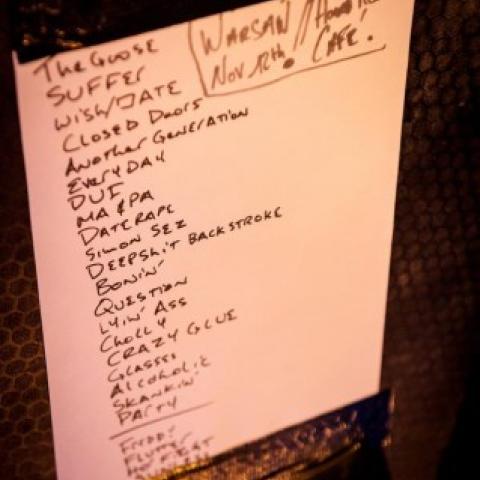 WARSAW // 
NOV 12th. CAFÉ!
The Goose
SUFFER
WISH/DATE
CLOSED DOORS
ANOTHER GENERATION
EVERYDAY
DUI
MA & PA
DATERAPE
SIMON SEZ
DEEPSHIT BACKSTROKE
BONIN'
QUESTION
LYIN' ASS
CHOLLY
CRAZY GLUE
GLASSES
ALCOHOLIC
SKANKIN'
PARTY
FREDDY